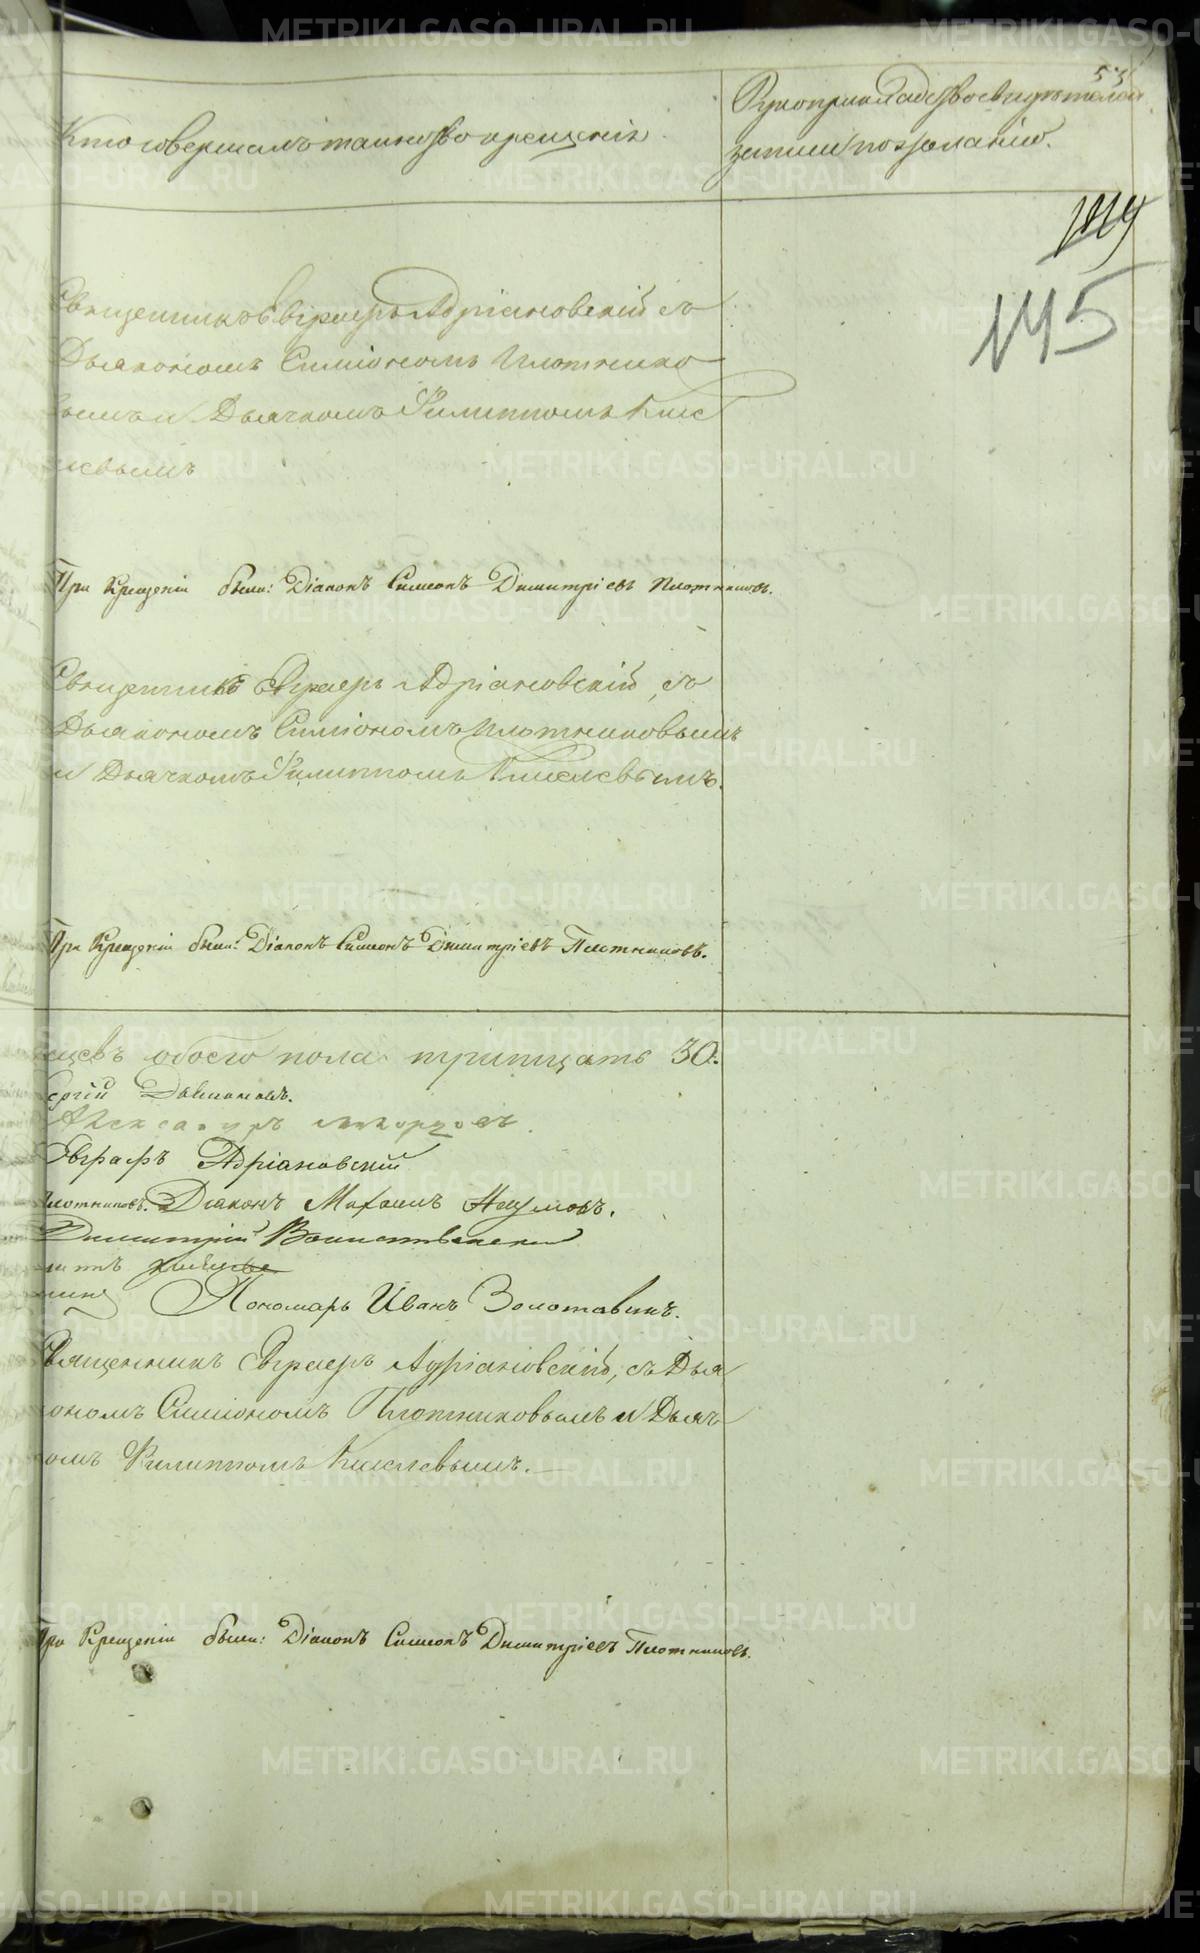 53
Кто совершалъ таинство крещенія.
Рукоприкладство свидѣтелей
записи по желанію.
145
Священникъ Евграфъ Адріановскій съ
Дьякономъ Симіономъ Плотнико
вымъ и Дьячкомъ Филиппомъ Кисе
левымъ
При Крещеніи были: Діаконъ Симеонъ Димитріевъ Плотниковъ.
Священникъ Евграфъ Адріановскій, съ
Дьякономъ Симіономъ Плотниковымъ
и Дьячкомъ Филиппомъ Киселевымъ.
При Крещеніи были: Діаконъ Симеонъ Димитріевъ Плотниковъ.
обоего пола тритцать 30.
Евграфъ Адріановскій
Плотниковъ. Діаконъ Максимъ Наумовъ.
Димитрій
Пономарь Иванъ Золотавинъ.
Священникъ Евграфъ Адріановскій, съ Дья
кономъ Симіономъ Плотниковымъ и Дьяч
комъ Филиппомъ Киселевымъ.
При Крещеніи были: Діаконъ Симеонъ Димитріевъ Плотниковъ.
METRIKI.GASO-URAL.RU